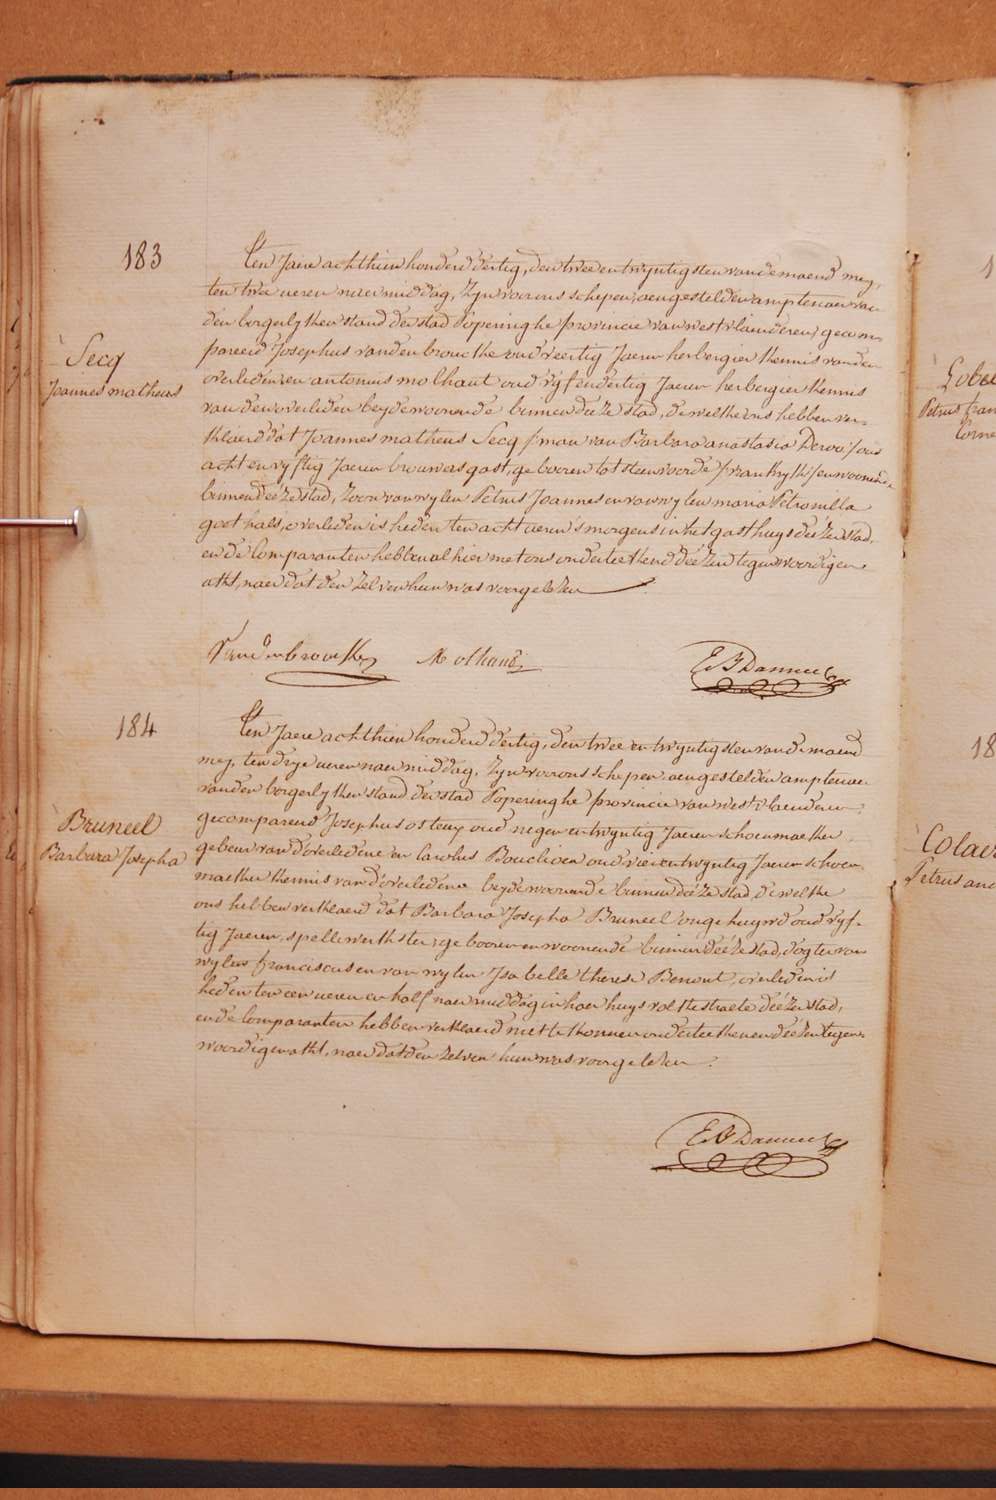 183
Secq
Joannes matheus
Ten Jaere achthien honderd dertig, den twee en twyntigsten van de maend mey,
ten twee ueren naer middag, Zyn voor ons schepen, aengestelden amptenaer van
den borgerlyken stand der stad Poperinghe provincie van westvlaenderen, gecom-
pareerd Josephus vandenbroucke oud veertig Jaeren herbergier kennis van den
overledenen en antonius molhant oud vyf en dertig Jaeren herbergier kennis
van den overleden beyde woonende binnen deéze stad, dewelke ons hebben ver-
klaerd dat Joannes matheus Secq /:man van Barbara anastasia Devos:/ oud
acht en vyftig Jaeren brouwersgast, gebooren tot steenvoorde /:vrankryk:/ en woonende
binnen deéze stad, Zoon van wylen Petrus Joannes en van wylen maria Petronilla
goethals, overleden is heden ten acht ueren 's morgens in het gasthuys deézer stad,
en de Comparanten hebben alhier met ons onderteekend deézen tegenwoordigen
akt, naer dat den zelven hun was voorgelezen
Vandenbroucke Molhant E. F. Danneel
184
Bruneel
Barbara Josepha
Ten Jaere achthien honderd dertig, den twee en twyntigsten van de maend
mey, ten drye ueren naer middag, Zyn voor ons schepen aengestelden amptenaer
van den borgerlyken stand der stad Poperinghe provincie van westvlaenderen,
gecompareerd Josephus osteux oud negen en twyntig Jaeren schoenmaeker,
gebeur van d'overledene en Carolus Bouclioen oud vier en twyntig Jaeren schoen-
maeker kennis van d'overledene beyde woonende binnen deéze stad, dewelke
ons hebben verklaerd dat Barbara Josepha Bruneel ongehuywd oud vyf-
tig Jaeren, spellewerkster, gebooren en woonende binnen deéze stad, dogter van
wylen franciscus en van wylen Isabelle therese Benout, overleden is
heden ten een ueren en half naer middag in haer huys volkestraete deézer stad,
en de Comparanten hebben verklaerd niet te konnen onderteekenen deézen tegen-
woordigen akt, naer dat den zelven hun was voorgelezen.
E. F. Danneel
Petrus
18
Petrus